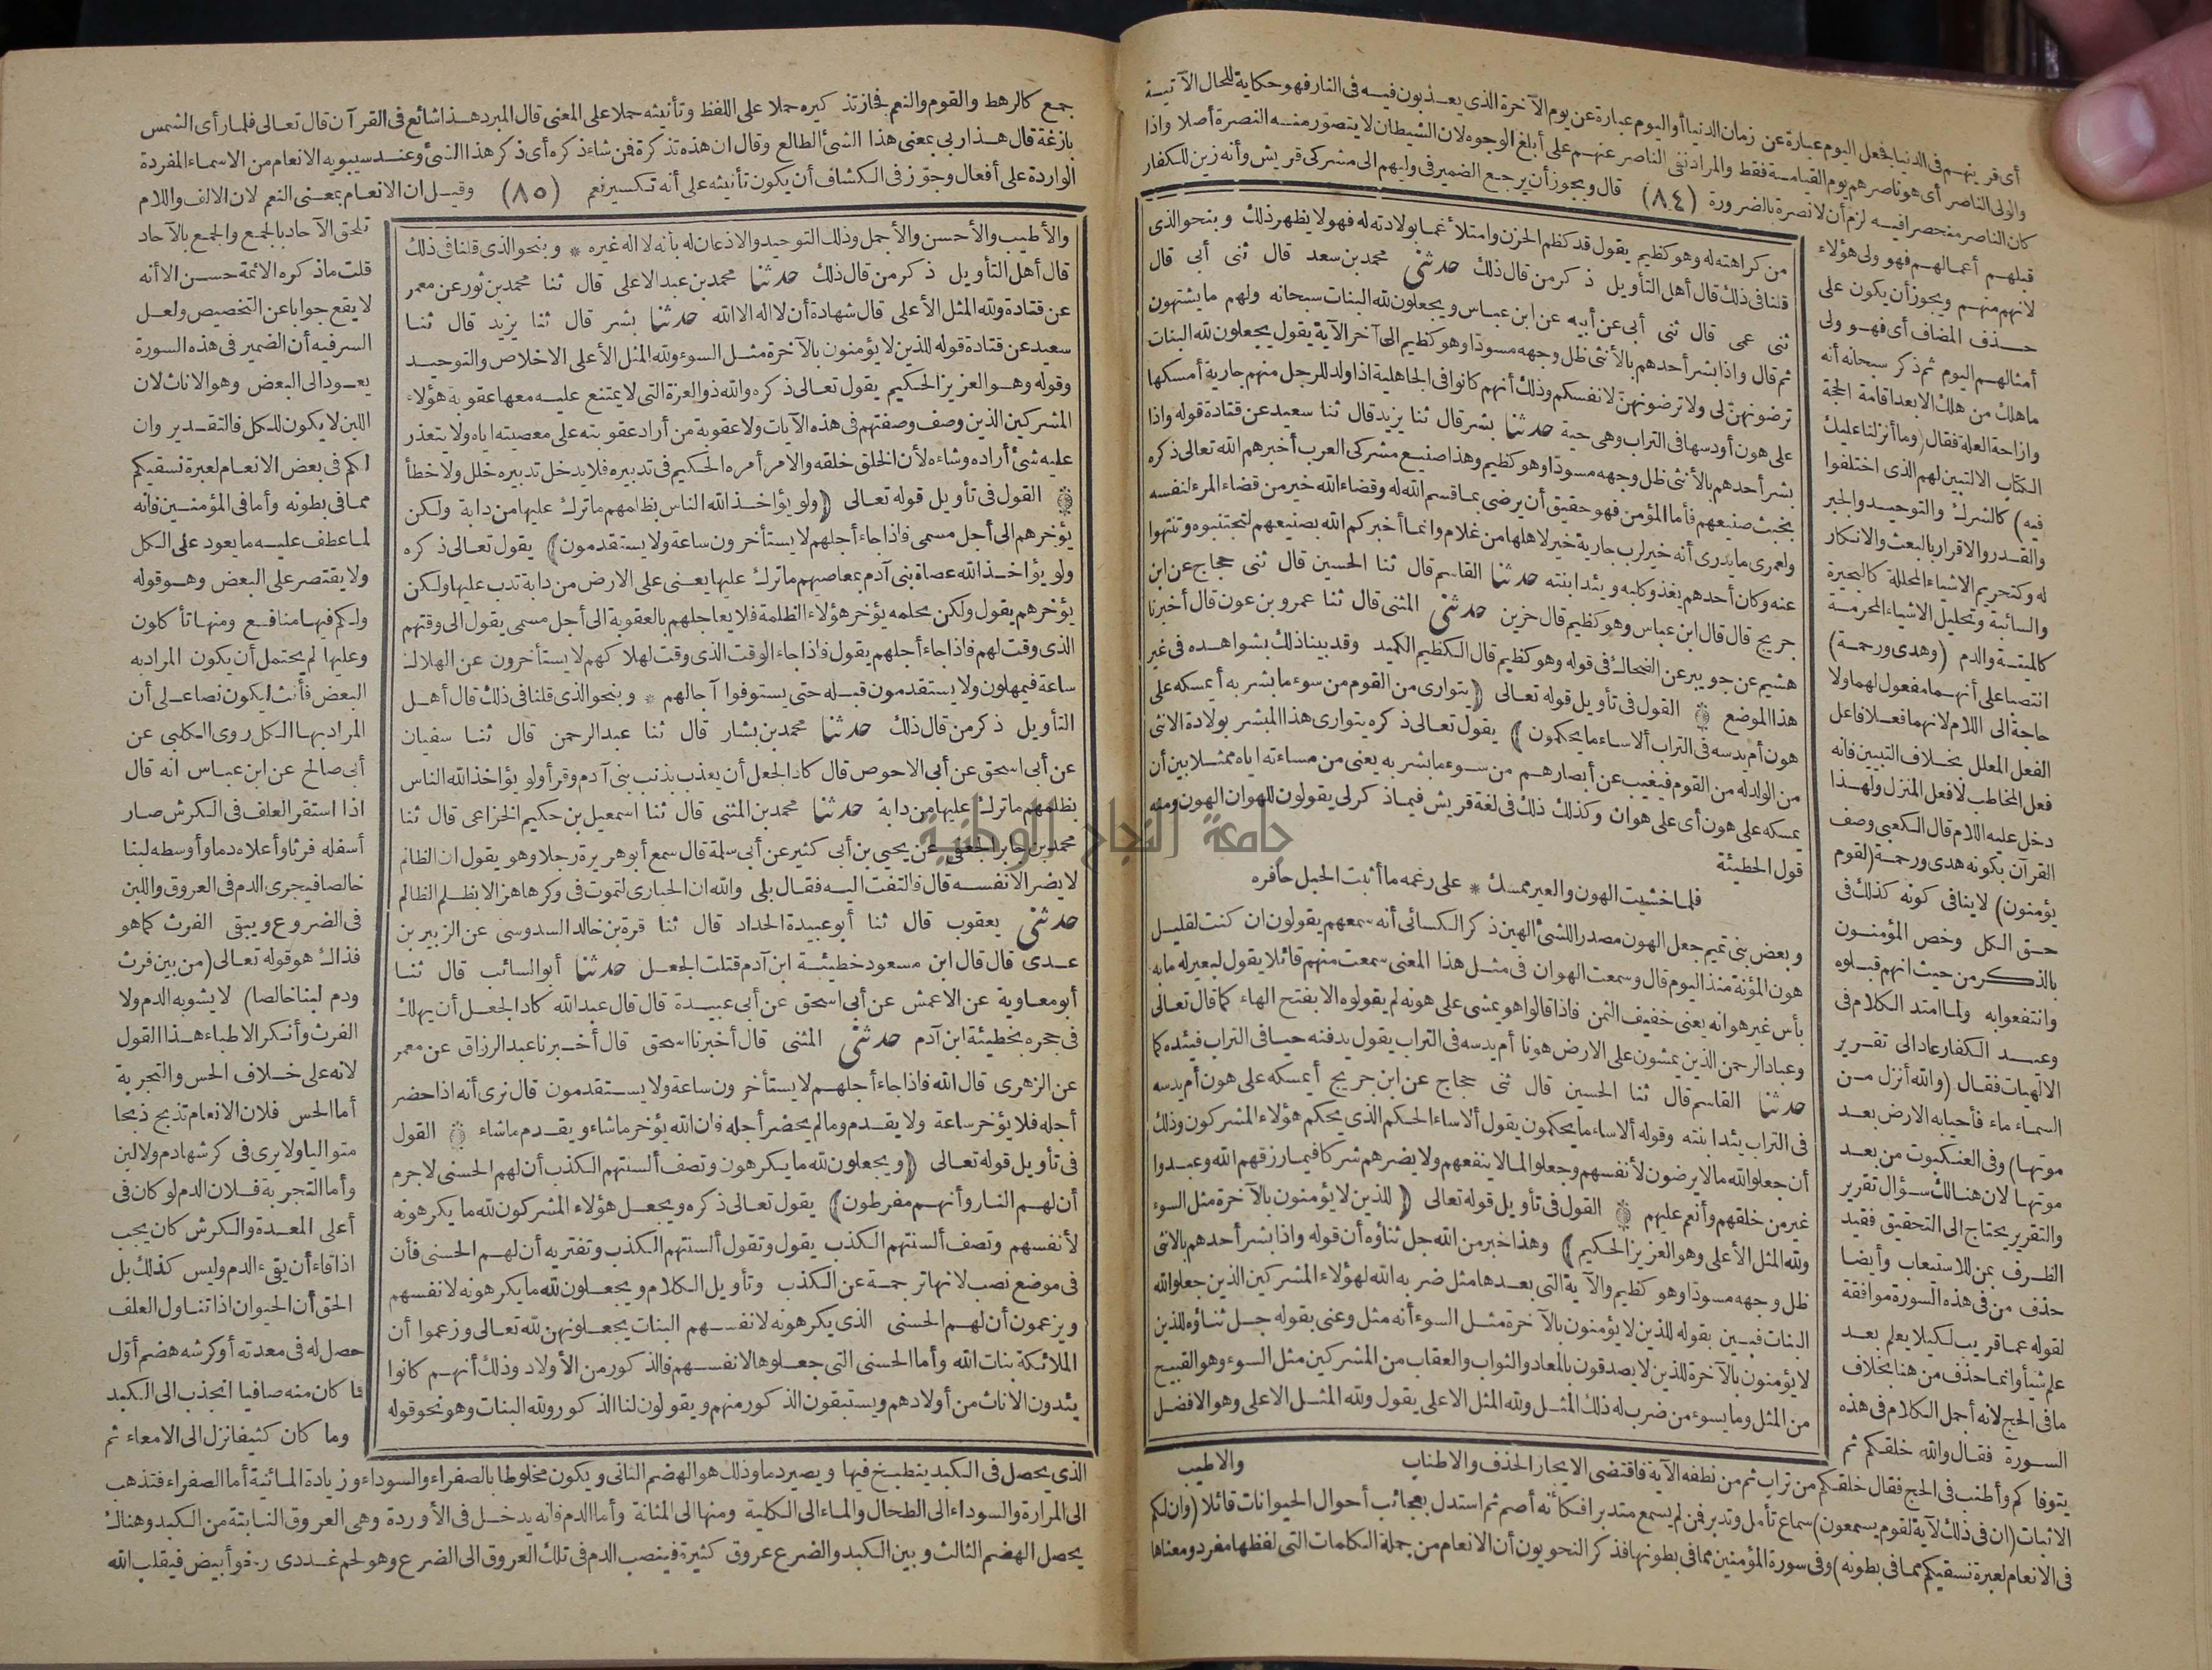 أى قرينهم فى الدنيا بجعل اليوم عبارة عن زمان الدنيا أو اليوم عبارة عن يوم الآخرة الذى يعذبون فيه فى النار فهو حكاية للحال الآتية
والولى الناصر أى هو ناصرهم يوم القيامة فقط والمراد نفى الناصر عنهم على أبلغ الوجوه لان الشيطان لا يتصور منه النصرة أصلا واذا
كان الناصر منحصرا فيه لزم أن لا نصرة بالضرورة (٨٤) قال ويجوز أن يرجع الضمير فى وليهم الى مشركى قريش وأنه زين للكفار
قبلهم أعمالهم فهو ولى هؤلاء
لانهم منهم ويجوز أن يكون على
حذف المضاف أى فهو ولى
أمثالهم اليوم ثم ذكر سبحانه أنه
ما هلك من هلك الا بعد اقامة الحجة
وازاحة العلة فقال (وما أنزلنا عليك
الكتاب الا لتبين لهم الذى اختلفوا
فيه) كالشرك والتوحيد والجبر
والقدر والاقرار بالبعث والانكار
له وكتحريم الاشياء المحللة كالبحيرة
والسائبة وتحليل الاشياء المحرمة
كالميتة والدم (وهدى ورحمة)
انتصبا على أنهما مفعول لهما ولا
حاجة الى اللام لانهما فعلا فاعل
الفعل المعلل بخلاف التبيين فانه
فعل المخاطب لا فعل المنزل ولهذا
دخل عليه اللام قال الكعبى وصف
القرآن بكونه هدى ورحمة (لقوم
يؤمنون) لا ينافى كونه كذلك فى
حق الكل وخص المؤمنون
بالذكر من حيث انهم قبلوه
وانتفعوا به ولما امتد الكلام فى
وعيد الكفار عاد الى تقرير
الالهيات فقال (والله أنزل من
السماء ماء فأحيا به الارض بعد
موتها) وفى العنكبوت من بعد
موتها لان هنالك سؤال تقرير
والتقرير يحتاج الى التحقيق فقيد
الظرف بمن للاستيعاب وأيضا
حذف من فى هذه السورة موافقة
لقوله عما قريب لكيلا يعلم بعد
علم شيأ وانما حذف من هنا بخلاف
ما فى الحج لانه أجمل الكلام فى هذه
السورة فقال والله خلقكم ثم
من كراهته له وهو كظيم يقول قد كظم الحزن وامتلأ غما بولادته له فهو لا يظهر ذلك وبنحو الذى
قلنا فى ذلك قال أهل التأويل ذكر من قال ذلك حدثنى محمد بن سعد قال ثنى أبى قال
ثنى عمى قال ثنى أبى عن أبيه عن ابن عباس ويجعلون لله البنات سبحانه ولهم ما يشتهون
ثم قال واذا بشر أحدهم بالأنثى ظل وجهه مسودا وهو كظيم الى آخر الآية يقول يجعلون لله البنات
ترضونهن لى ولا ترضونهن لانفسكم وذلك أنهم كانوا فى الجاهلية اذا ولد للرجل منهم جارية أمسكها
على هون أو دسها فى التراب وهى حية حدثنا بشر قال ثنا يزيد قال ثنا سعيد عن قتادة قوله واذا
بشر أحدهم بالأنثى ظل وجهه مسودا وهو كظيم وهذا صنيع مشركى العرب أخبرهم الله تعالى ذكره
بخبث صنيعهم فأما المؤمن فهو حقيق أن يرضى بما قسم الله له وقضاء الله خير من قضاء المرء لنفسه
ولعمرى ما يدرى أنه خير لرب جارية خير لاهلها من غلام وانما أخبركم الله بصنيعهم لتجتنبوه وتنتهوا
عنه وكان أحدهم يغذو كلبه ويئد ابنته حدثنا القاسم قال ثنا الحسين قال ثنى حجاج عن ابن
جريج قال قال ابن عباس وهو كظيم قال حزين حدثنى المثنى قال ثنا عمرو بن عون قال أخبرنا
هشيم عن جويبر عن الضحاك فى قوله وهو كظيم قال الكظيم الكميد وقد بينا ذلك بشواهده فى غير
هذا الموضع القول فى تأويل قوله تعالى ﴿يتوارى من القوم من سوء ما بشر به أيمسكه على
هون أم يدسه فى التراب ألا ساء ما يحكمون﴾ يقول تعالى ذكره يتوارى هذا المبشر بولادة الانثى
من الولد له من القوم فيغيب عن أبصارهم من سوء ما بشر به يعنى من مساءته اياه ممثلا بين أن
يمسكه على هون أى على هوان وكذلك ذلك فى لغة قريش فيما ذكر لى يقولون للهوان الهون ومنه
قول الحطيئة
فلما خشيت الهون والعير ممسك * على رغمه ما أثبت الحبل حافره
وبعض بنى تميم جعل الهون مصدرا للشئ الهين ذكر الكسائى أنه سمعهم يقولون ان كنت لقليل
هون المؤنة منذ اليوم قال وسمعت الهوان فى مثل هذا المعنى سمعت منهم قائلا يقول لبعير له ما به
بأس غير هوانه يعنى خفيف الثمن فاذا قالوا هو يمشى على هونه لم يقولوه الا بفتح الهاء كما قال تعالى
وعباد الرحمن الذين يمشون على الارض هونا أم يدسه فى التراب يقول يدفنه حيا فى التراب فيئده كما
حدثنا القاسم قال ثنا الحسين قال ثنى حجاج عن ابن جريج أيمسكه على هون أم يدسه
فى التراب يئد ابنته وقوله ألا ساء ما يحكمون يقول ألا ساء الحكم الذى يحكم هؤلاء المشركون وذلك
أن جعلوا لله ما لا يرضون لأنفسهم وجعلوا لما لا ينفعهم ولا يضرهم شركا فيما رزقهم الله وعبدوا
غير من خلقهم وأنعم عليهم القول فى تأويل قوله تعالى ﴿للذين لا يؤمنون بالآخرة مثل السوء
ولله المثل الأعلى وهو العزيز الحكيم﴾ وهذا خبر من الله جل ثناؤه أن قوله واذا بشر أحدهم بالانثى
ظل وجهه مسودا وهو كظيم والآية التى بعدها مثل ضربه الله لهؤلاء المشركين الذين جعلوا لله
البنات فبين بقوله للذين لا يؤمنون بالآخرة مثل السوء أنه مثل وعنى بقوله جل ثناؤه للذين
لا يؤمنون بالآخرة للذين لا يصدقون بالمعاد والثواب والعقاب من المشركين مثل السوء وهو القبيح
من المثل وما يسوء من ضرب له ذلك المثل ولله المثل الاعلى يقول ولله المثل الاعلى وهو الافضل
والاطيب
يتوفاكم وأطنب فى الحج فقال خلقكم من تراب ثم من نطفة الآية فاقتضى الايجاز الحذف والاطناب
الاثبات (ان فى ذلك لآية لقوم يسمعون) سماع تأمل وتدبر فمن لم يسمع متدبرا فكأنه أصم ثم استدل بعجائب أحوال الحيوانات قائلا (وان لكم
فى الانعام لعبرة نسقيكم مما فى بطونه) وفى سورة المؤمنين مما فى بطونها فذكر النحويون أن الانعام من جملة الكلمات التى لفظها مفرد ومعناها
جمع كالرهط والقوم والنعم فجاز تذكيره حملا على اللفظ وتأنيثه حملا على المعنى قال المبرد هذا شائع فى القرآن قال تعالى فلما رأى الشمس
بازغة قال هذا ربى بمعنى هذا الشئ الطالع وقال ان هذه تذكرة فمن شاء ذكره أى ذكر هذا الشئ وعند سيبويه الانعام من الاسماء المفردة
الواردة على أفعال وجوز فى الكشاف أن يكون تأنيثه على أنه تكسير نعم (٨٥) وقيل ان الانعام بمعنى النعم لان الالف واللام
تلحق الآحاد بالجمع والجمع بالآحاد
قلت ما ذكره الائمة حسن الا أنه
لا يقع جوابا عن التخصيص ولعل
السر فيه أن الضمير فى هذه السورة
يعود الى البعض وهو الاناث لان
اللبن لا يكون للكل فالتقدير وان
لكم فى بعض الانعام لعبرة نسقيكم
مما فى بطونه وأما فى المؤمنين فانه
لما عطف عليه ما يعود على الكل
ولا يقتصر على البعض وهو قوله
ولكم فيها منافع ومنها تأكلون
وعليها لم يحتمل أن يكون المراد به
البعض فأنث ليكون نصا على أن
المراد بها الكل روى الكلبى عن
أبى صالح عن ابن عباس انه قال
اذا استقر العلف فى الكرش صار
أسفله فرثا وأعلاه دما وأوسطه لبنا
خالصا فيجرى الدم فى العروق واللبن
فى الضروع ويبقى الفرث كما هو
فذاك هو قوله تعالى (من بين فرث
ودم لبنا خالصا) لا يشوبه الدم ولا
الفرث وأنكر الاطباء هذا القول
لانه على خلاف الحس والتجربة
أما الحس فلان الانعام تذبح ذبحا
متواليا ولا يرى فى كرشها دم ولا لبن
وأما التجربة فلان الدم لو كان فى
أعلى المعدة والكرش كان يجب
اذا قاء أن يقىء الدم وليس كذلك بل
الحق أن الحيوان اذا تناول العلف
حصل له فى معدته أو كرشه هضم أول
فما كان منه صافيا انجذب الى الكبد
وما كان كثيفا نزل الى الامعاء ثم
والأطيب والأحسن والأجمل وذلك التوحيد والاذعان له بأنه لا اله غيره * وبنحو الذى قلنا فى ذلك
قال أهل التأويل ذكر من قال ذلك حدثنا محمد بن عبد الاعلى قال ثنا محمد بن ثور عن معمر
عن قتادة ولله المثل الأعلى قال شهادة أن لا اله الا الله حدثنا بشر قال ثنا يزيد قال ثنا
سعيد عن قتادة قوله للذين لا يؤمنون بالآخرة مثل السوء ولله المثل الأعلى الاخلاص والتوحيد
وقوله وهو العزيز الحكيم يقول تعالى ذكره والله ذو العزة التى لا يمتنع عليه معها عقوبة هؤلاء
المشركين الذين وصف وصفتهم فى هذه الآيات ولا عقوبة من أراد عقوبته على معصيته اياه ولا يتعذر
عليه شئ أراده وشاءه لأن الخلق خلقه والامر أمره الحكيم فى تدبيره فلا يدخل تدبيره خلل ولا خطأ
القول فى تأويل قوله تعالى ﴿ولو يؤاخذ الله الناس بظلمهم ما ترك عليها من دابة ولكن
يؤخرهم الى أجل مسمى فاذا جاء أجلهم لا يستأخرون ساعة ولا يستقدمون﴾ يقول تعالى ذكره
ولو يؤاخذ الله عصاة بنى آدم بمعاصيهم ما ترك عليها يعنى على الارض من دابة تدب عليها ولكن
يؤخرهم يقول ولكن بحلمه يؤخر هؤلاء الظلمة فلا يعاجلهم بالعقوبة الى أجل مسمى يقول الى وقتهم
الذى وقت لهم فاذا جاء أجلهم يقول فاذا جاء الوقت الذى وقت لهلاكهم لا يستأخرون عن الهلاك
ساعة فيمهلون ولا يستقدمون قبله حتى يستوفوا آجالهم * وبنحو الذى قلنا فى ذلك قال أهل
التأويل ذكر من قال ذلك حدثنا محمد بن بشار قال ثنا عبد الرحمن قال ثنا سفيان
عن أبى اسحق عن أبى الاحوص قال كاد الجعل أن يعذب بذنب بنى آدم وقرأ ولو يؤاخذ الله الناس
بظلمهم ما ترك عليها من دابة حدثنا محمد بن المثنى قال ثنا اسمعيل بن حكيم الخزاعى قال ثنا
محمد بن جابر الجعفى عن يحيى بن أبى كثير عن أبى سلمة قال سمع أبو هريرة رجلا وهو يقول ان الظالم
لا يضر الا نفسه قال فالتفت اليه فقال بلى والله ان الحبارى لتموت فى وكرها هزالا بظلم الظالم
حدثنى يعقوب قال ثنا أبو عبيدة الحداد قال ثنا قرة بن خالد السدوسى عن الزبير بن
عدى قال قال ابن مسعود خطيئة ابن آدم قتلت الجعل حدثنا أبو السائب قال ثنا
أبو معاوية عن الاعمش عن أبى اسحق عن أبى عبيدة قال قال عبد الله كاد الجعل أن يهلك
فى جحره بخطيئة ابن آدم حدثنى المثنى قال أخبرنا اسحق قال أخبرنا عبد الرزاق عن معمر
عن الزهرى قال الله فاذا جاء أجلهم لا يستأخرون ساعة ولا يستقدمون قال نرى أنه اذا حضر
أجله فلا يؤخر ساعة ولا يقدم وما لم يحضر أجله فان الله يؤخر ما شاء ويقدم ما شاء القول
فى تأويل قوله تعالى ﴿ويجعلون لله ما يكرهون وتصف ألسنتهم الكذب أن لهم الحسنى لا جرم
أن لهم النار وأنهم مفرطون﴾ يقول تعالى ذكره ويجعل هؤلاء المشركون لله ما يكرهونه
لأنفسهم وتصف ألسنتهم الكذب يقول وتقول ألسنتهم الكذب وتفتريه أن لهم الحسنى فأن
فى موضع نصب لانها ترجمة عن الكذب وتأويل الكلام ويجعلون لله ما يكرهونه لانفسهم
ويزعمون أن لهم الحسنى الذى يكرهونه لانفسهم البنات يجعلونهن لله تعالى وزعموا أن
الملائكة بنات الله وأما الحسنى التى جعلوها لانفسهم فالذكور من الأولاد وذلك أنهم كانوا
يئدون الاناث من أولادهم ويستبقون الذكور منهم ويقولون لنا الذكور ولله البنات وهو نحو قوله
الذى يحصل فى الكبد ينطبخ فيها ويصير دما وذلك هو الهضم الثانى ويكون مخلوطا بالصفراء والسوداء وزيادة المائية أما الصفراء فتذهب
الى المرارة والسوداء الى الطحال والماء الى الكلية ومنها الى المثانة وأما الدم فانه يدخل فى الأوردة وهى العروق النابتة من الكبد وهناك
يحصل الهضم الثالث وبين الكبد والضرع عروق كثيرة فينصب الدم فى تلك العروق الى الضرع وهو لحم غددى رخو أبيض فيقلب الله
جامعة النجاح الوطنية